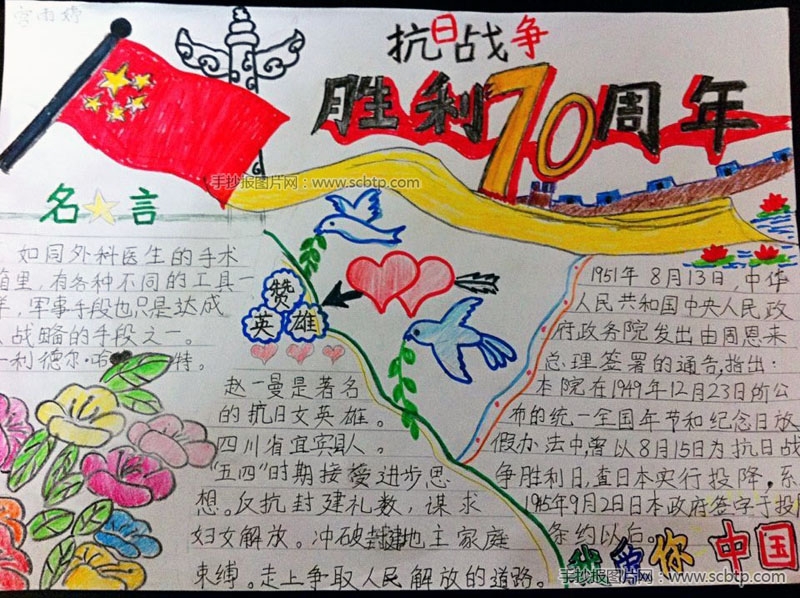 宫雨婷
抗日战争
胜利70周年
手抄报图片网：www.scbtp.com
名言
如同外科医生的手术
箱里，有各种不同的工具一
样，军事手段也只是达成
战略的手段之一。
利德尔·哈 特。
赞
英雄
赵一曼是著名
的抗日女英雄。
四川省宜宾县人。
“五四”时期接受进步思
想。反抗封建礼数，谋求
妇女解放。冲破封建地主家庭
束缚。走上争取人民解放的道路。
1951年8月13日，中华
人民共和国中央人民政
府政务院发出由周恩来
总理签署的通告，指出：
本院在1949年12月23日所公
布的统一全国年节和纪念日放
假办法中，曾以8月15日为抗日战
争胜利日，查日本实行投降，系
1945年9月2日日本政府签字于投
条约以后。
我爱你中国
手抄报图片网：www.scbtp.com